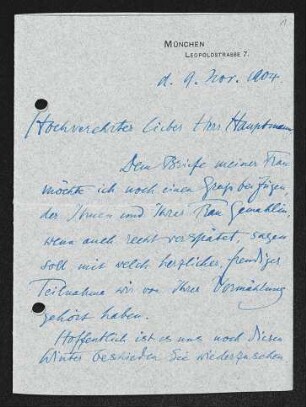 MÜNCHEN
LEOPOLDSTRASSE 7.
d. 9. Nov. 1904
Hochverehrter lieber Herr Hauptmann
Dem Briefe meiner Frau
möchte ich noch einen Gruß beifügen,
der Ihnen und Ihrer Frau Gemahlin,
wenn auch recht verspätet, sagen
soll mit welch herzlicher, freudiger
Teilnahme wir von Ihrer Vermählung
gehört haben.
Hoffentlich ist es uns noch diesen
Winter beschieden Sie wiederzusehen